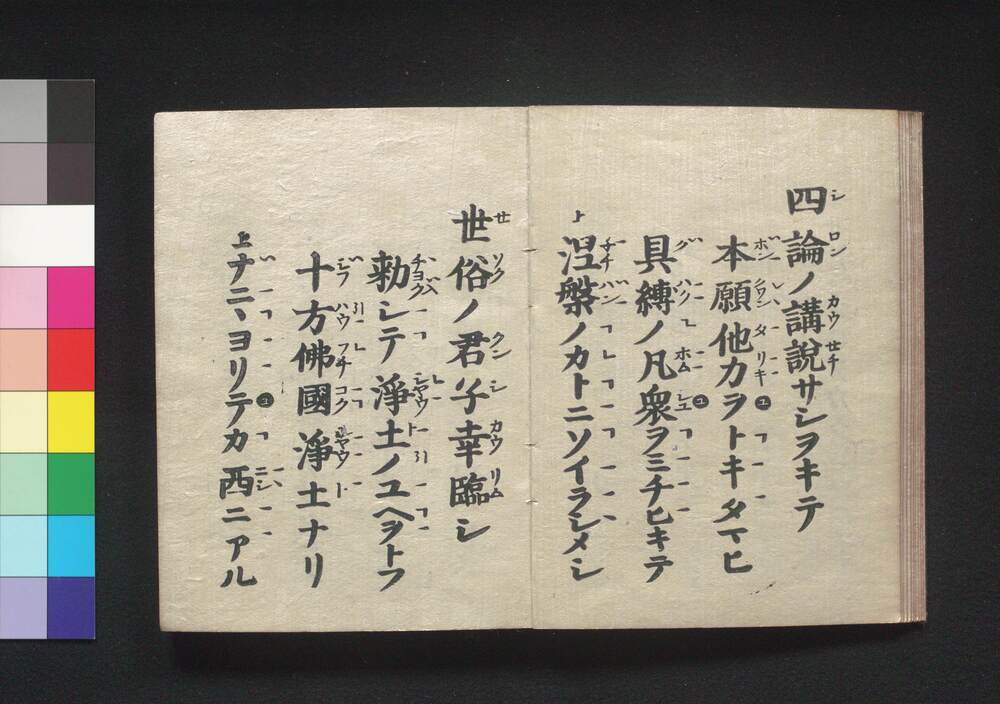 四論ノ講説サシヲキテ
本願他力ヲトキタマヒ
具縛ノ凡衆ヲミチヒキテ
涅槃ノカトニソイラシメシ
世俗ノ君子幸臨シ
勅シテ淨土ノユヘヲトフ
十方佛國淨土ナリ
ナニヽヨリテカ西ニアル